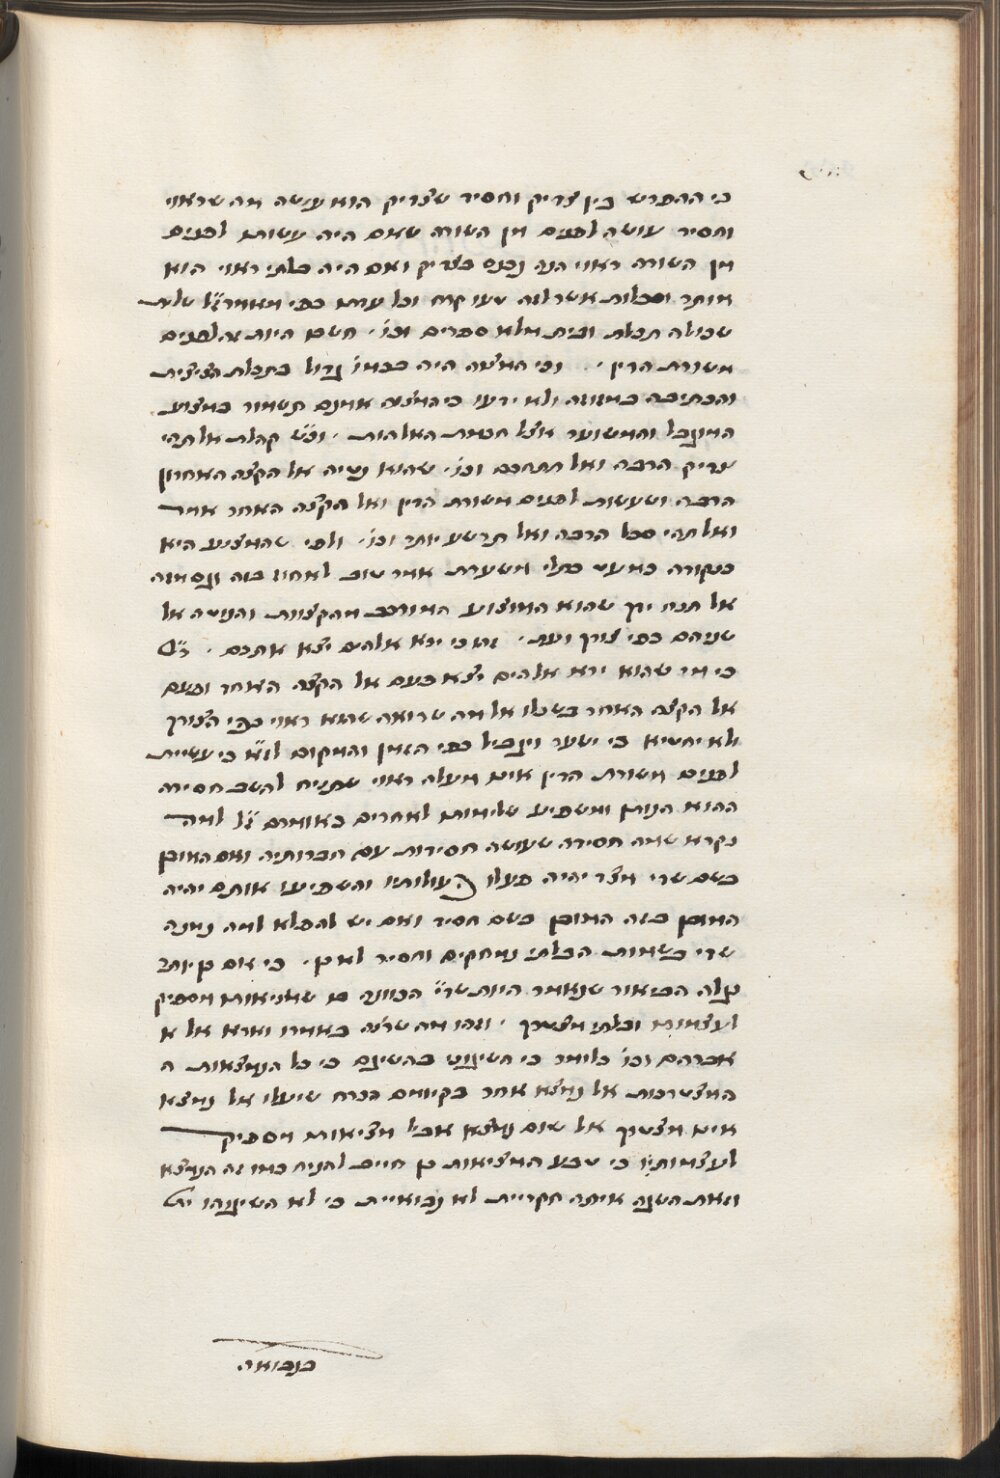 כי ההפרש בין צדיק וחסיד שצדיק הוא עושה מה שראוי
וחסיד עושה לפנים מן השורה שאם היה עשות לפנים
מן השורה ראוי הנה נכנס בצדיק ואם היה בלתי ראוי הוא
מותר וסכלות אשר לזה טעו קרח וכל עדתו כפי מאמר ז״ל טלית
שכולה תכלת ובית מלא ספרים וכו׳ חשבו היות זה לפנים
משורת הדין וכי המצוה היה בכמו גדול בתכלת הציצית
והכתיבה במזוזה ולא ידעו כי המצוה אמנם תשמור במצוע
המוגבל והמשוער אצל חכמת האלהות וכ״ש קהלת אל תהי
צדיק הרבה ואל תתחכם וכו׳ שהוא נטיה אל הקצה האחרון
הרבה ושעשות לפנים משורת הדין ואל הקצה האחר אמר
ואל תהי סכל הרבה ואל תרשע יותר וכו׳ ולפי שהמצוע היא
כנקודה כמעט בלתי משוערת אמר טוב לאחוז בזה וגם מזה
אל תנח ידך שהוא המוצוע המורכב מהקצוות והנוטה אל
שניהם כפי צורך ועת וזהו כי ירא אלהים יצא את כולם ר״ל
כי מי שהוא ירא אלהים יצא פעם אל הקצה האחד ופעם
אל הקצה האחר בשכלו אל מה שרואה שהוא ראוי כפי הצורך
ולא יחטיא כי ישער ויגביל כפי הזמן והמקום לז״א כי עשיית
לפנים משורת הדין אינו מעלה ראוי שתניח להשב חסידה
ההוא הנותן ומשפיע שלימות לאחרים כאומרם ז״ל למה
נקרא שמה חסידה שעושה חסידות עם חברותיה ואם המובן
בשם שדי מצד יהיה פעלו העולותיו והשפיעו אותם יהיה
המובן בזה המובן בשם חסיד ואם יש להפלא למה נמנה
שדי בשמות הבלתי נמחקים וחסיד לא כן כי אם כן יותר
נגלה הביאור שנאמר היות שדי הכוונה בו שמציאותו מספיק
לעצמותו ובלתי מצטרך וזהו מה שרצה באמרו וארא אל א
אברהם וכו׳ כלומר כי השיגוני בהשיגם כי כל הנמצאות ה
המצטרכות אל נמצא אחר בקיומם הכרח שיעלו אל נמצא
אינו מצטרך אל שום נמצא אבל מציאותו מספיק
לעצמותו כי טבע המציאות כן חייב להניח כמו זה הנמצא
וזאת השגה אינה חקריית לא נבואיית כי לא השיגוהו ית׳
בנבואה